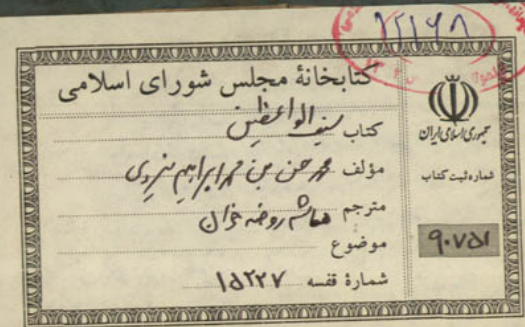 ۱۲۱۶۸
کتابخانهٔ مجلس شورای اسلامی
کتاب سیف الواعظین
مؤلف محمد حسن بن محمد ابراهیم یزدی
مترجم هاشم روضه خوان
موضوع
شمارهٔ قفسه ۱۵۲۲۷
جمهوری اسلامی ایران
شماره ثبت کتاب
۹۰۷۵۱